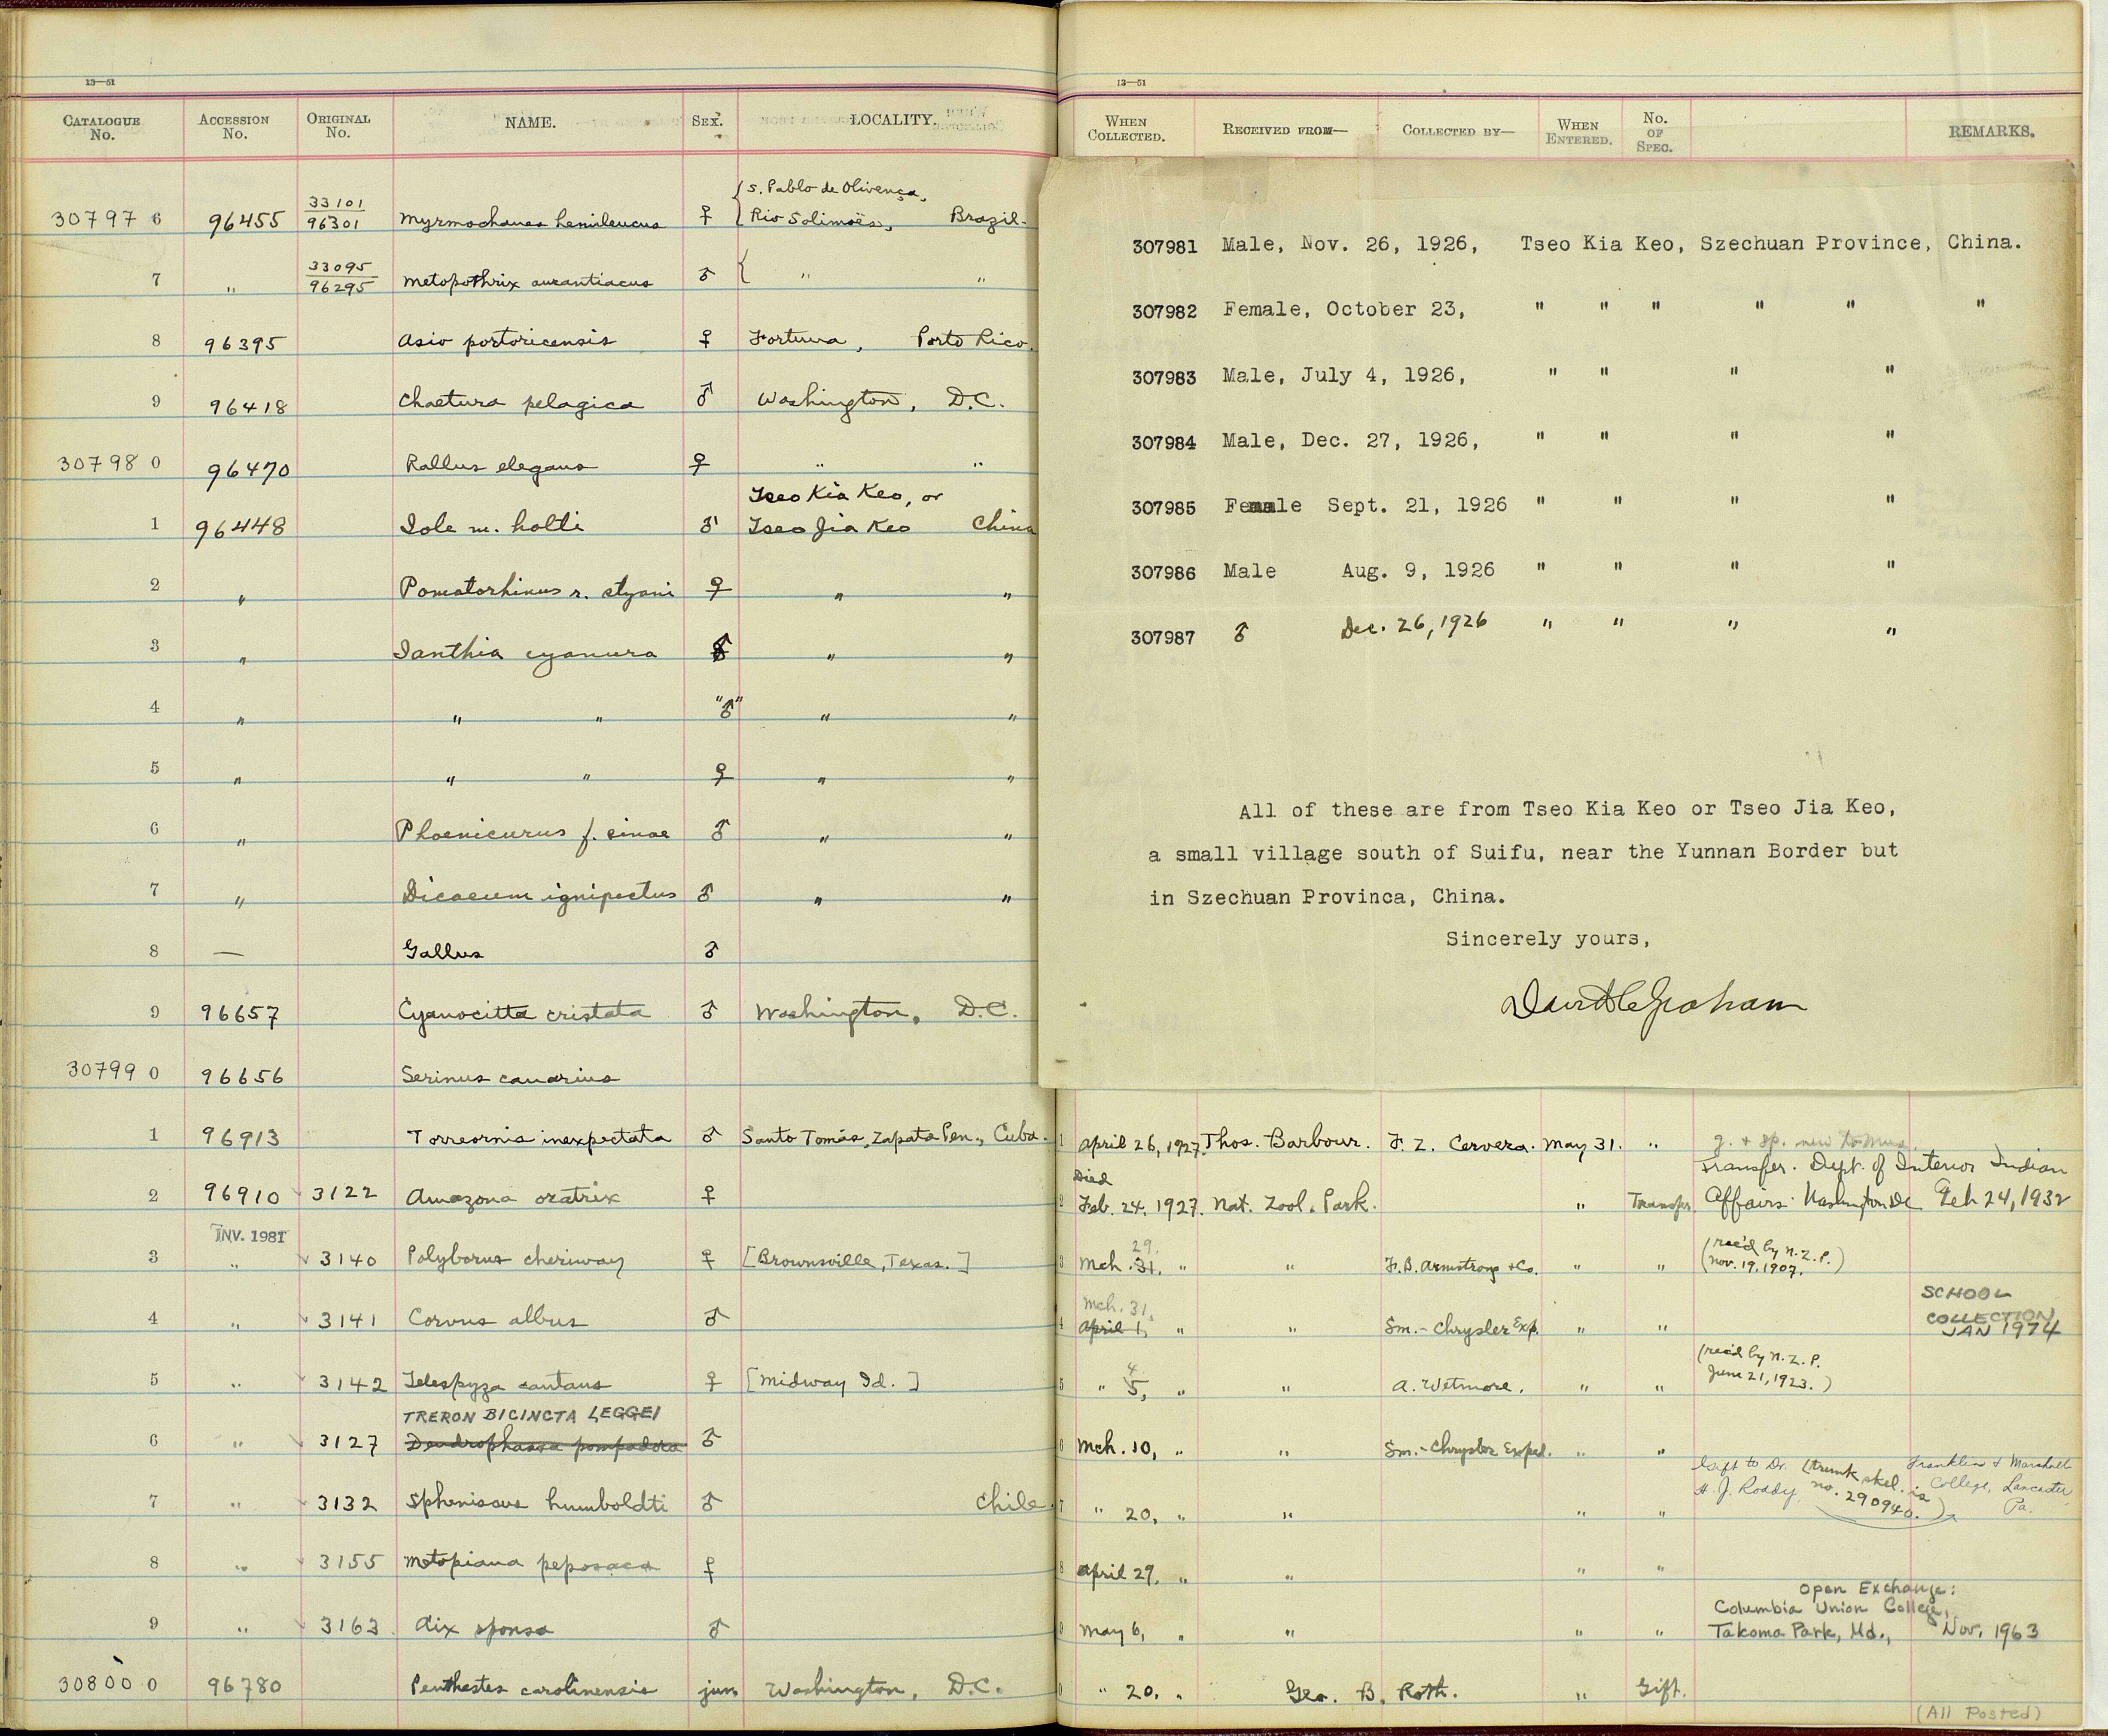 13—51
CATALOGUE No. ACCESSION No. ORIGINAL No. NAME. SEX. LOCALITY.
S. Pablo de Olivença,
30797 6 96455 33101 96301 Myrmochanes hemileucus ♀ Rio Solimoës, Brazil.
7 " 33095 96295 Metopothrix aurantiacus ♂ " "
8 96395 Asio portoricensis ♀ Fortuna, Porto Rico.
9 96418 Chaetura pelagica ♂ Washington, D.C.
30798 0 96470 Rallus elegans ♀ " "
Tseo Kia Keo, or
1 96448 Iole m. holti ♂ Tseo Jia Keo China
2 " Pomatorhinus r. styani ♀ " "
3 " Ianthia cyanura ♂ " "
4 " " " "♂" " "
5 " " " ♀ " "
6 " Phoenicurus f. sinae ♂ " "
7 " Dicaeum ignipectus ♂ " "
8 — Gallus ♂
9 96657 Cyanocitta cristata ♂ Washington, D.C.
30799 0 96656 Serinus canarius
1 96913 Torreornis inexpectata ♂ Santo Tomás, Zapata Pen., Cuba.
2 96910 3122 Amazona oratrix ♀
INV. 1981
3 " 3140 Polyborus cheriway ♀ [Brownsville, Texas.]
4 " 3141 Corvus albus ♂
5 " 3142 Telespyza cantans ♀ [Midway Id.]
TRERON BICINCTA LEGGEI
6 " 3127 Dendrophassa pompadora ♂
7 " 3132 Spheniscus humboldti ♂ Chile
8 " 3155 Metopiana peposaca ♀
9 " 3163 Aix sponsa ♂
30800 0 96780 Penthestes carolinensis juv. Washington, D.C.
13—51
WHEN COLLECTED. RECEIVED FROM— COLLECTED BY— WHEN ENTERED. No. OF SPEC. REMARKS.
307981 Male, Nov. 26, 1926, Tseo Kia Keo, Szechuan Province, China.
307982 Female, October 23, " " " " " "
307983 Male, July 4, 1926, " " " "
307984 Male, Dec. 27, 1926, " " " "
307985 Female Sept. 21, 1926 " " " "
307986 Male Aug. 9, 1926 " " " "
307987 ♂ Dec. 26, 1926 " " " "
All of these are from Tseo Kia Keo or Tseo Jia Keo,
a small village south of Suifu, near the Yunnan Border but
in Szechuan Provinca, China.
Sincerely yours,
David C Graham
1 April 26, 1927. Thos. Barbour. F. Z. Cervera. May 31. " g. + sp. new to Mus.
Died Transfer. Dept. of Interior Indian
2 Feb. 24, 1927. Nat. Zool. Park. " Transfer Affairs Washington DC Feb 24, 1932
29.
3 Mch. 31, " " F. B. Armstrong + Co. " " (rec'd by N.Z.P.
Nov. 19, 1907.)
Mch. 31. SCHOOL
4 April 1, " " Sm.-Chrysler Exp. " " COLLECTION
JAN 1974
4
5 " 5, " " A. Wetmore. " " (rec'd by N.Z.P.
June 21, 1923.)
6 Mch. 10, " " Sm.-Chrysler Exped. " "
Gift to Dr. H. J. Roddy. Franklin & Marshall College, Lancaster, Pa.
(trunk skel. is no. 290940.)
7 " 20, " " " "
8 April 29, " " " "
Open Exchange:
Columbia Union College,
9 May 6, " " " " Takoma Park, Md., Nov. 1963
0 " 20, " Geo. B. Roth. " Gift.
(All Posted)